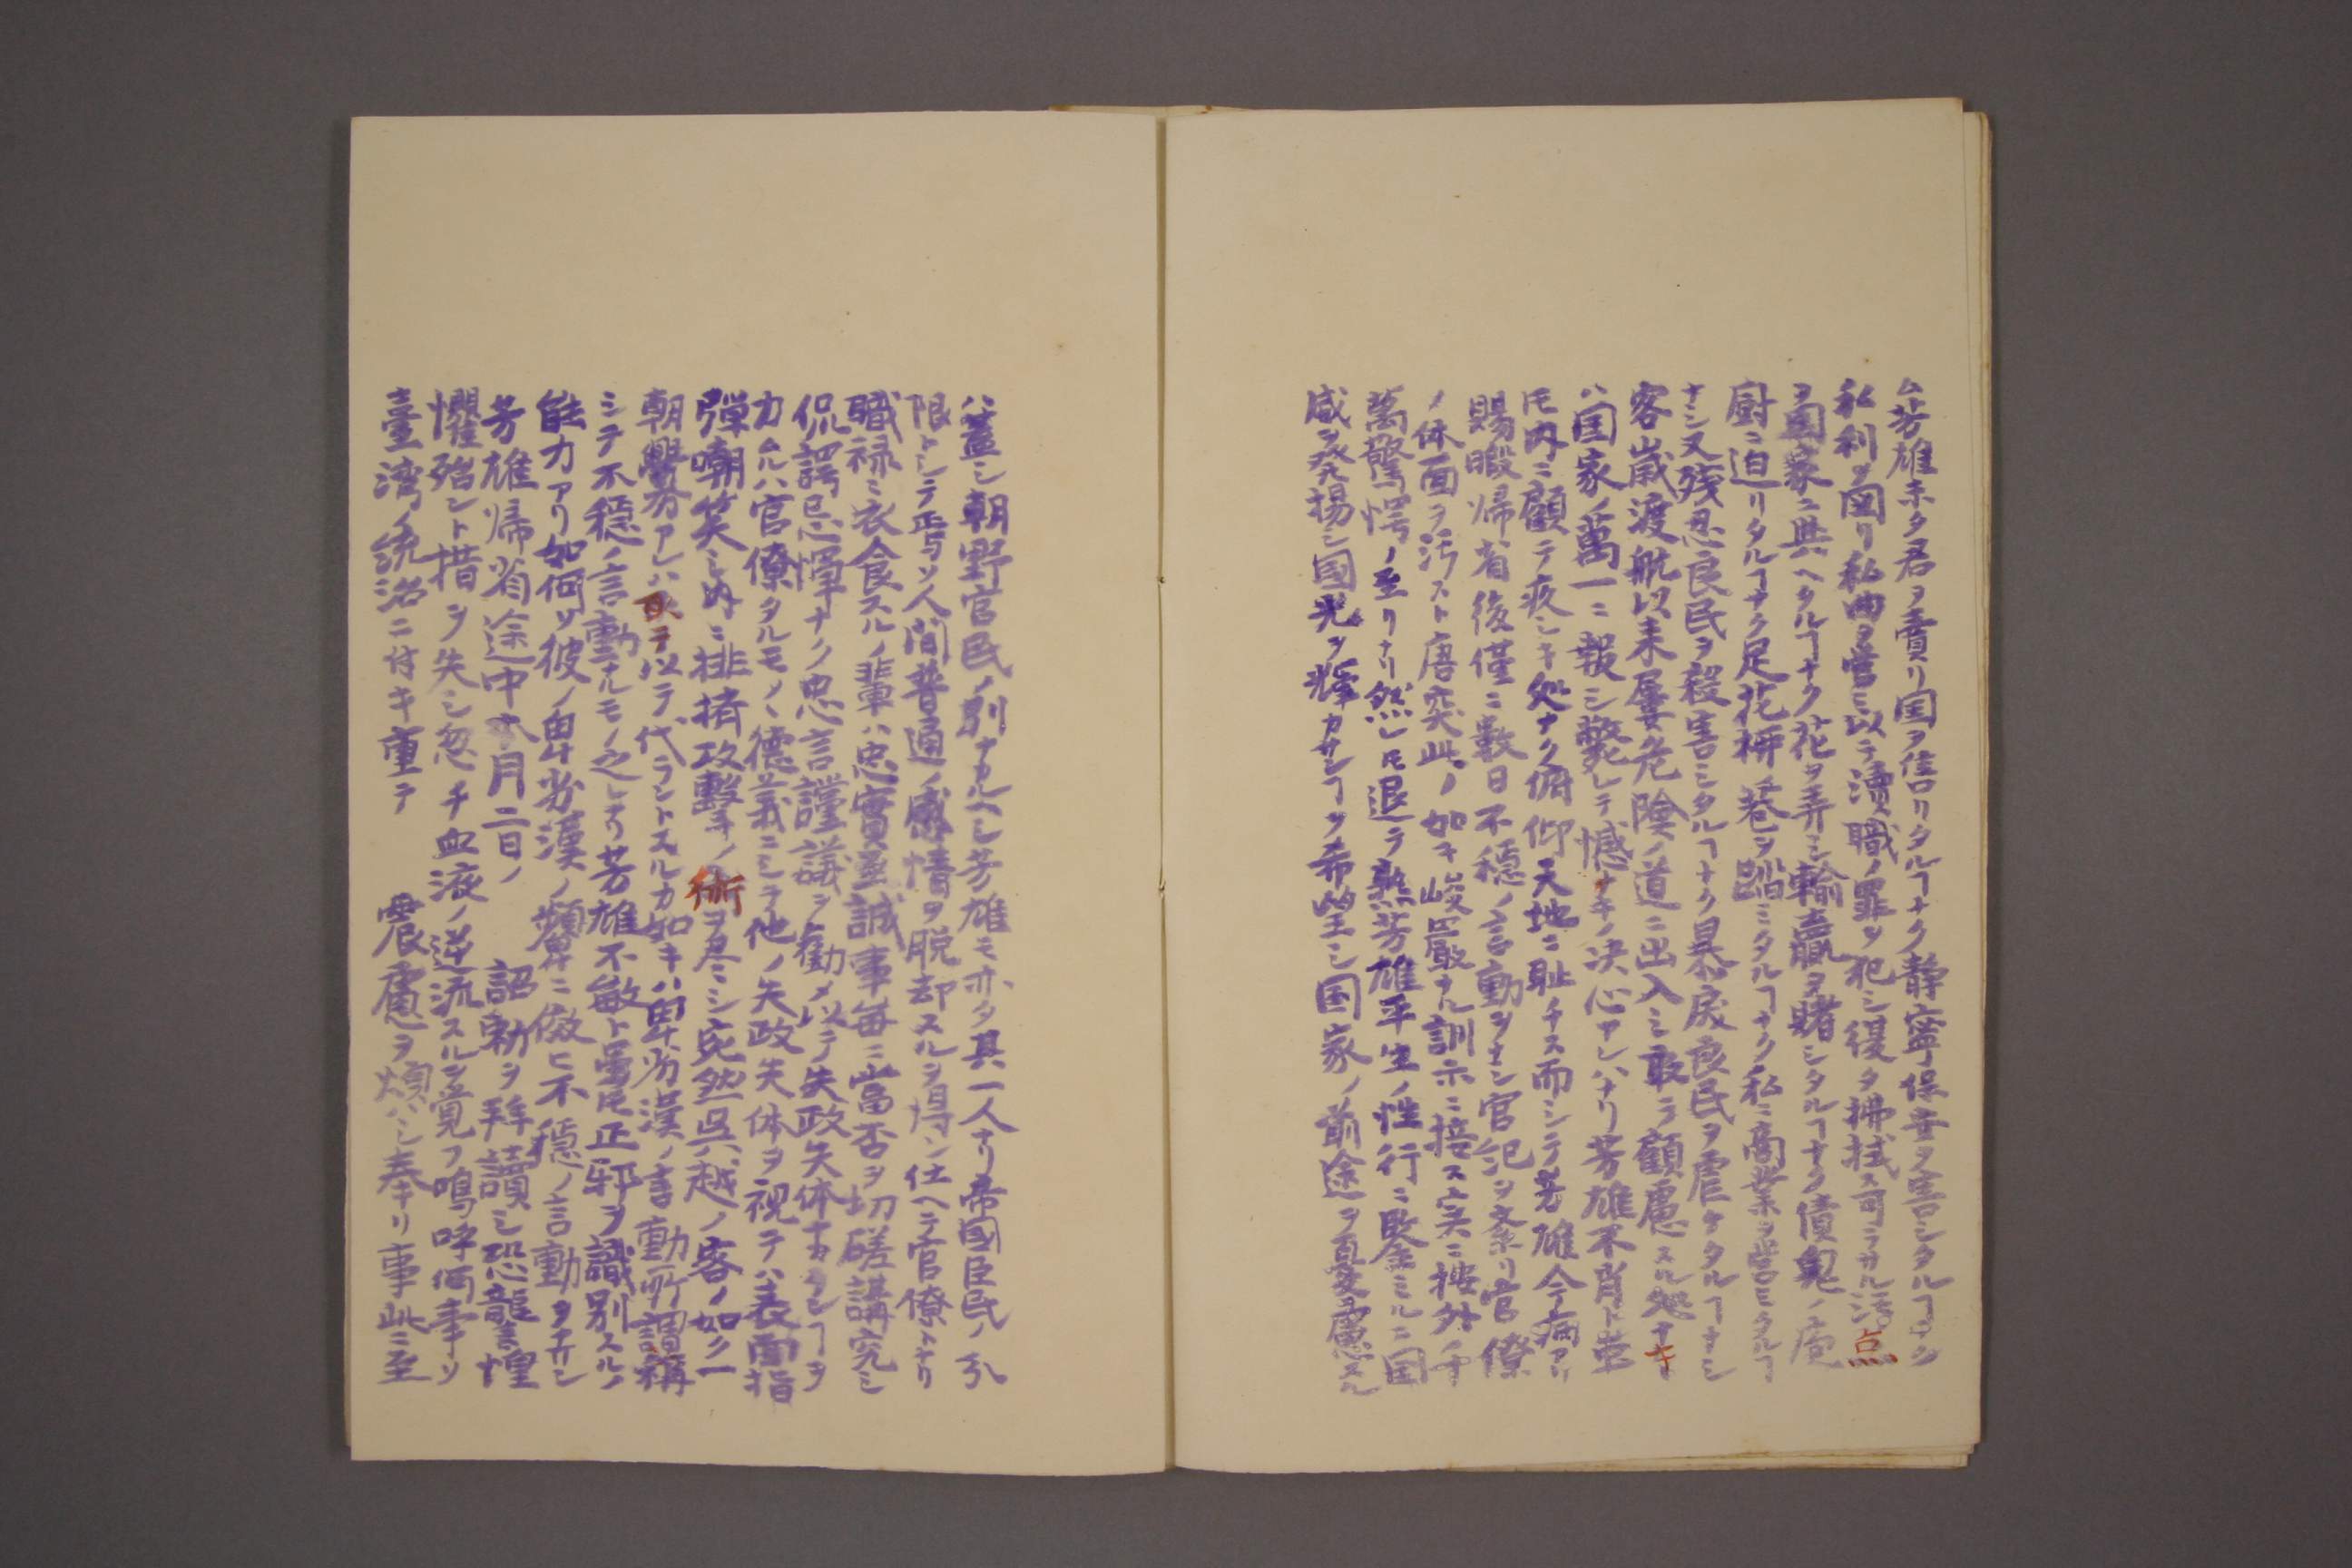 ム芳雄未タ君ヲ賣リ国ヲ售リタルヿナク静寧保垂ヲ害シタルヿナシ
私利ヲ図リ私曲ヲ營ミ以テ瀆職ノ罪ヲ犯シ復タ拂拭ス可ラサル汚点
ヲ国家ニ與ヘタルヿナク花ヲ弄シ輸贏ヲ賭シタルヿナク債鬼ノ庖
厨ニ迫リタルヿナク足花柳ノ巷ヲ踏ミタルヿナク私ニ商業ヲ營ミタルヿ
ナシ又残忍良民ヲ殺害シタルヿナク暴戻良民ヲ虐ケタルヿナシ
客歳渡航以来屡危険ノ道ニ出入シ敢テ顧慮スル処ナキ
ハ国家ノ萬一ニ報シ斃レテ憾ナキノ决心アレハナリ芳雄不肖ト虽
ㇳモ内ニ顧テ疚シキ処ナク俯仰天地ニ耻チス而シテ芳雄今病アリ
賜暇帰省後僅ニ數日不穏ノ言動ヲナシ官紀ヲ紊リ官僚
ノ体面ヲ汚スト唐突此ノ如キ峻嚴ナル訓示ニ接ス実ニ按外ノ千
萬驚愕ノ至リナリ然レㇳモ退テ熟芳雄平生ノ性行ニ鑒ミルニ国
威ヲ発揚シ國光ヲ輝カサンヿヲ希望シ国家ノ前途ヲ憂慮スル
ハ蓋シ朝野官民ノ別ナカルヘシ芳雄モ亦タ其一人ナリ帝國臣民ノ分
限トシテ焉ソ人間普通ノ感情ヲ脱却スルヲ得ン仕ヘテ官僚トナリ
職禄ニ衣食スルノ輩ハ忠實至誠事毎ニ當否ヲ切磋講究シ
侃諤忌憚ナク忠言讜議ヲ勸メ以テ失政失体ナカラシヿヲ
力ムルハ官僚タルモノヽ德義ニシテ他ノ失政失体ヲ視テハ表面指
弾嘲笑シ内ニ排擠攻撃ノ術ヲ尽ミシ宛然呉越ノ客ノ如ク一
朝釁アレハ取テ以テ代ラントスルカ如キハ卑劣漢ノ言動所謂稱
シテ不穏ノ言動ナルモノ之レナリ芳雄不敏ト虽ㇳモ正邪ヲ識別スルノ
能力アリ如何ソ彼ノ卑劣漢ノ顰ニ倣ヒ不穏ノ言動ヲナサン
芳雄帰省途中本月二日ノ　詔勅ヲ拜讀シ恐龍警惶
懼殆ント措ヲ失シ忽チ血液ノ逆流スルヲ覚フ嗚呼何事ソ
臺湾ノ統治ニ付キ重テ　震慮ヲ煩ハシ奉リ事此ニ至